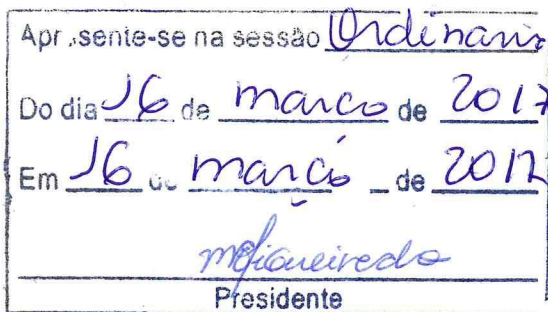 Apresente-se na sessão Ordinaria
Do dia 16 de março de 2017
Em 16 de março de 2017
Presidente